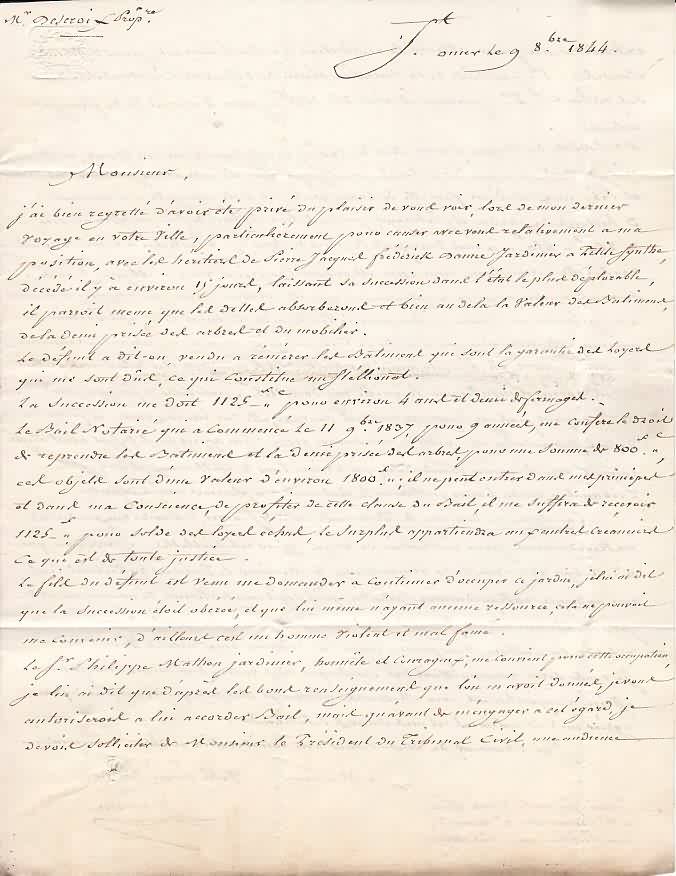 Mr. Descroix Propre.
St. omer le 9 8.bre 1844.
Monsieur,
j'ai bien regretté d'avoir été privé du plaisir de vous voir, lors de mon dernier
voyage en votre Ville, particulièrement pour causer avec vous relativement a ma
position, avec les heritiers de Pierre Jacques frédérick Jardinier a Petite Synthe,
décédé il y a environ 15 jours, laissant sa succession dans l'état le plus déplorable,
il paroit même que les dettes absorberont et bien au dela la Valeur des Batimens,
de la demi prisée des arbres et du mobilier.
Le défunt a dit-on, vendu a réméré les Batimens qui sont la garantie des Loyers
qui me sont dûs, ce qui Constitue un stellionat.
La Succession me doit 1125 f " c pour environ 4 ans et demie de fermages.
Le Bail Notarié qui a Commencé le 11 9bre 1837, pour 9 années, me confere le droit
de reprendre les Batimens et la demi prisée des arbres, pour une somme de 800 f " c,
ces objets sont d'une Valeur d'environ 1800 f "; il ne peut entrer dans mes principes
et dans ma Conscience, de profiter de cette clause du Bail, il me suffira de recevoir
1125 f " pour solde des loyers échus, le surplus appartiendra aux autres Créanciers
Ce que est de toute justice.
Le fils du défunt est venu me demander a Continuer d'occuper ce jardin, je lui ai dit
que la succession étoit obérée, et que lui même n'ayant aucune ressource, cela ne pouvoit
me convenir, d'ailleurs c'est un homme Violent et mal famé.
Le Sr. Philippe Mathon jardinier, honnête et Courageux, me convient pour cette occupation,
je lui ai dit que d'après les bons renseignemens que l'on m'avoit donnés, je vous
autoriserois a lui accorder Bail, mais qu'avant de m'engager a cet égard, je
devois solliciter de Monsieur le Président du Tribunal Civil, une audience